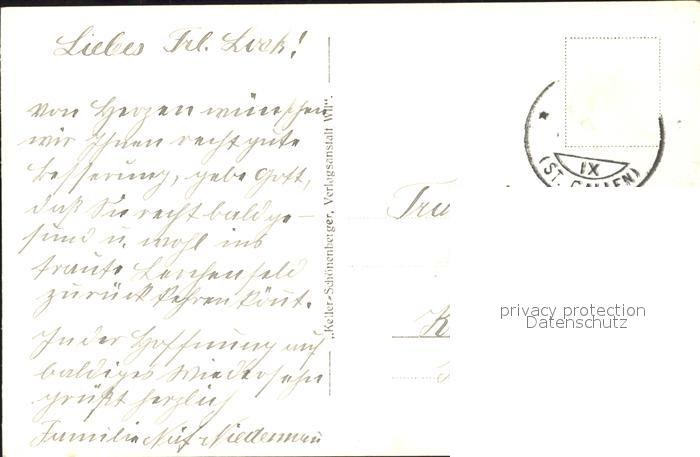 Liebes Frl. Lock!
von Herzen wünschen
wir Ihnen recht gute
Besserung, gebe Gott,
daß Sie recht bald ge-
sund u. wohl ins
traute Lerchenfeld
zurück kehren könt.
In der Hoffnung auf
baldiges Wiedersehn
grüßt herzlich
Familie
„Keller-Schönenberger, Verlagsanstalt Wil“.
IX
(ST. GALLEN)
privacy protection
Datenschutz